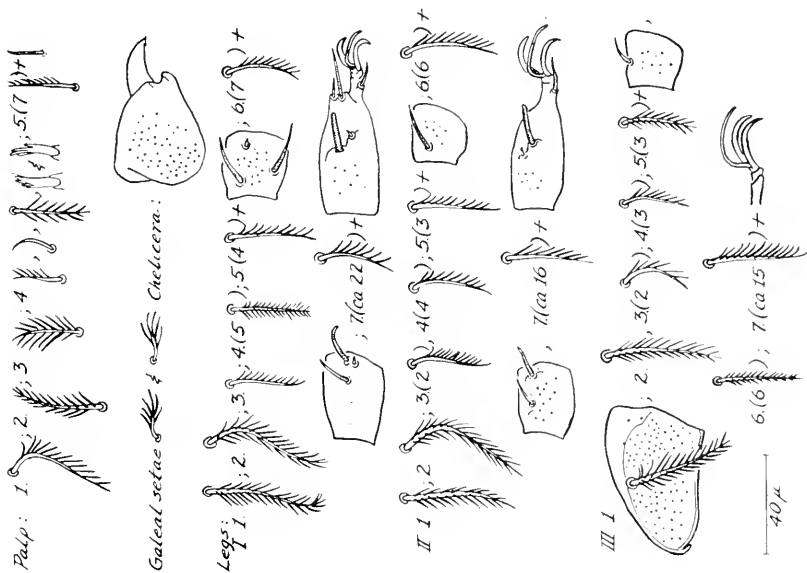 Palp: 1. ; 2. ; 3 ; 4 , ), ; & ; 5.(7 )+
Galeal setae & Chelicera:
Legs:
I 1. ; 2. ; 3. ; 4.(5 ); 5(4 )+ ; 6(7 )+
; 7.(ca 22 )+
II 1 ; 2 ; 3.(2 ), 4(4 ); 5(3 )+ , 6(6 )+
7.(ca 16 )+
III 1 ; 2. , 3.(2 ); 4(3 ); 5(3 )+ ,
6.(6 ); 7.(ca 15 )+
40 μ